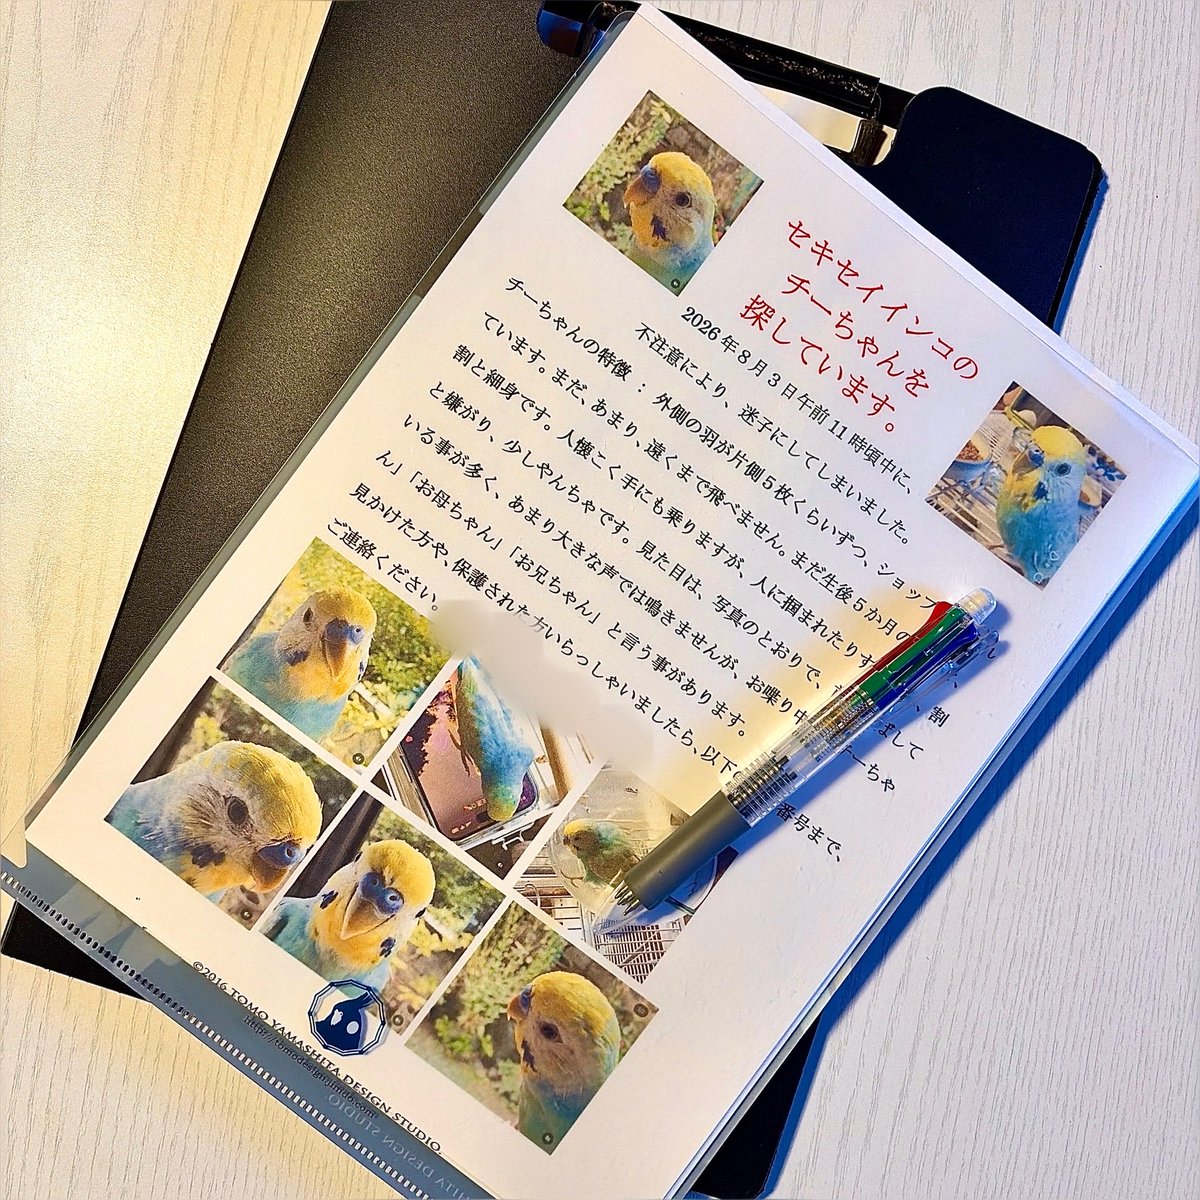 セキセイインコの
チーちゃんを
探しています。
2026年8月3日午前11時頃中に、
不注意により、迷子にしてしまいました。
チーちゃんの特徴 ： 外側の羽が片側5枚くらいずつ、ショップ
ています。まだ、あまり、遠くまで飛べません。まだ生後5か月の
割と細身です。人懐こく手にも乗りますが、人に掴まれたりす 割
と嫌がり、少しやんちゃです。見た目は、写真のとおりで、 まして
いる事が多く、あまり大きな声では鳴きませんが、お喋り中 ーちゃ
ん」「お母ちゃん」「お兄ちゃん」と言う事があります。
見かけた方や、保護された方いらっしゃいましたら、以下の 番号まで、
ご連絡ください。
©2016 TOMO YAMASHITA DESIGN STUDIO.
http://tomodesign.jimdo.com